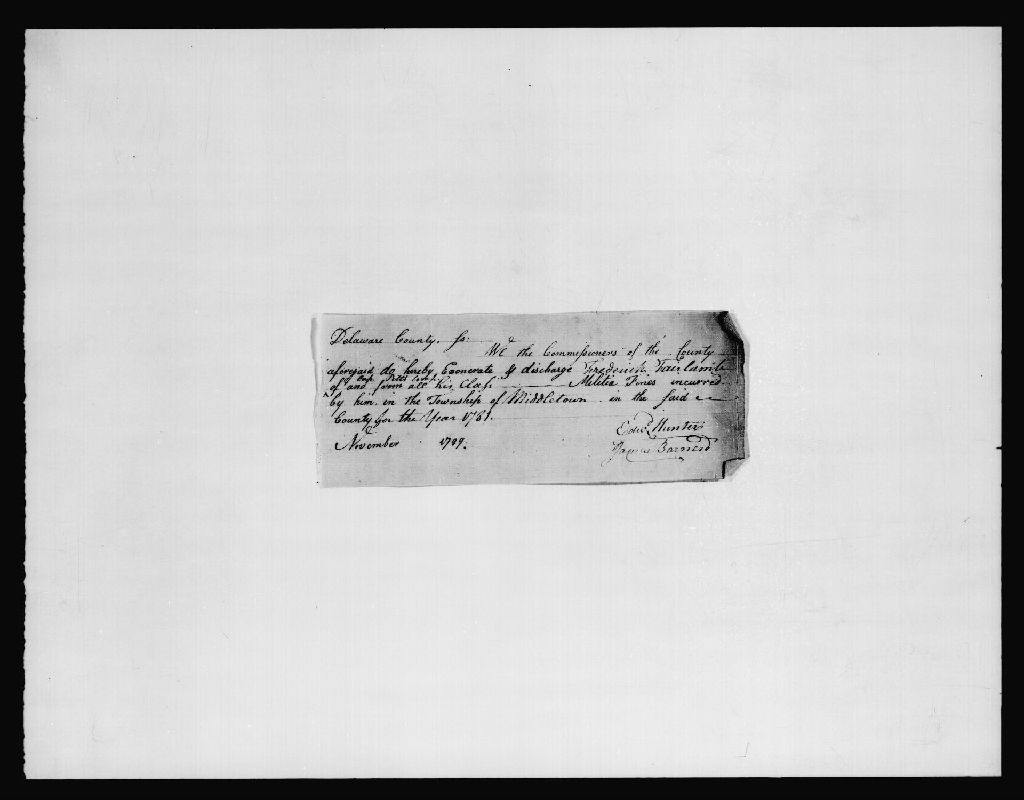 Delaware County. ss.
We the Commissioners of the County
aforesaid do hereby Exonerate & discharge Frederick Fairlamb
of and from all his Class Militia Fines incurred
by him in the Township of Middletown in the said
County for the Year 1781.
Edwd. Hunter
November 1789.
James Barnard